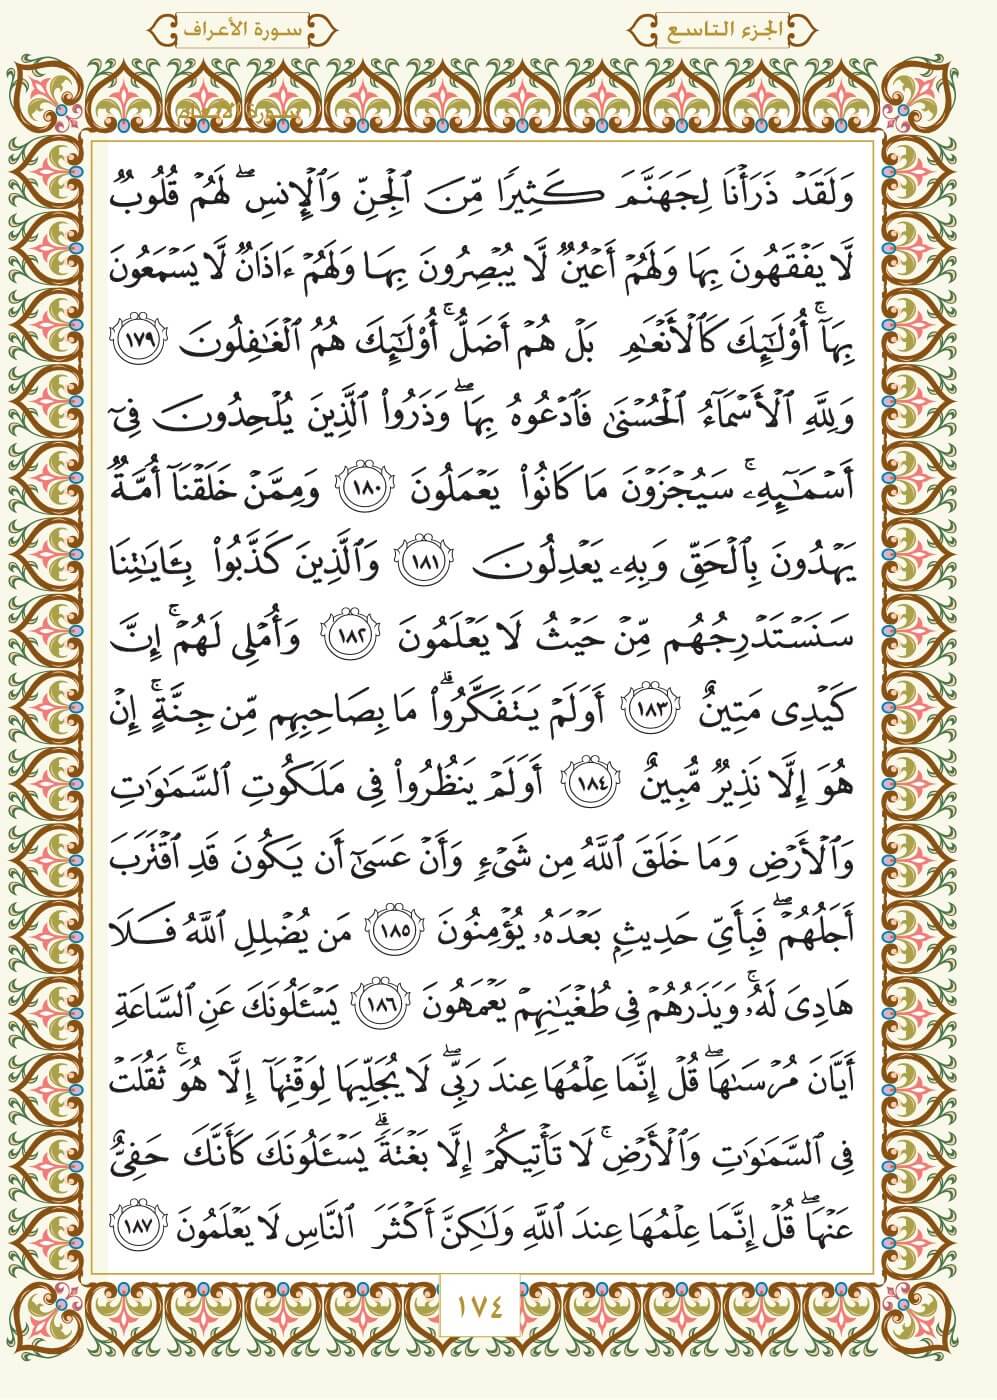 الجزء التاسع
سورة الأعراف
سورة الأنعام
وَلَقَدْ ذَرَأْنَا لِجَهَنَّمَ كَثِيرًا مِّنَ ٱلْجِنِّ وَٱلْإِنسِ ۖ لَهُمْ قُلُوبٌ
لَّا يَفْقَهُونَ بِهَا وَلَهُمْ أَعْيُنٌ لَّا يُبْصِرُونَ بِهَا وَلَهُمْ ءَاذَانٌ لَّا يَسْمَعُونَ
بِهَآ ۚ أُو۟لَـٰٓئِكَ كَٱلْأَنْعَـٰمِ بَلْ هُمْ أَضَلُّ ۚ أُو۟لَـٰٓئِكَ هُمُ ٱلْغَـٰفِلُونَ ١٧٩
وَلِلَّهِ ٱلْأَسْمَآءُ ٱلْحُسْنَىٰ فَٱدْعُوهُ بِهَا ۖ وَذَرُوا۟ ٱلَّذِينَ يُلْحِدُونَ فِىٓ
أَسْمَـٰٓئِهِۦ ۚ سَيُجْزَوْنَ مَا كَانُوا۟ يَعْمَلُونَ ١٨٠ وَمِمَّنْ خَلَقْنَآ أُمَّةٌ
يَهْدُونَ بِٱلْحَقِّ وَبِهِۦ يَعْدِلُونَ ١٨١ وَٱلَّذِينَ كَذَّبُوا۟ بِـَٔايَـٰتِنَا
سَنَسْتَدْرِجُهُم مِّنْ حَيْثُ لَا يَعْلَمُونَ ١٨٢ وَأُمْلِى لَهُمْ ۚ إِنَّ
كَيْدِى مَتِينٌ ١٨٣ أَوَلَمْ يَتَفَكَّرُوا۟ ۗ مَا بِصَاحِبِهِم مِّن جِنَّةٍ ۚ إِنْ
هُوَ إِلَّا نَذِيرٌ مُّبِينٌ ١٨٤ أَوَلَمْ يَنظُرُوا۟ فِى مَلَكُوتِ ٱلسَّمَـٰوَٰتِ
وَٱلْأَرْضِ وَمَا خَلَقَ ٱللَّهُ مِن شَىْءٍ وَأَنْ عَسَىٰٓ أَن يَكُونَ قَدِ ٱقْتَرَبَ
أَجَلُهُمْ ۖ فَبِأَىِّ حَدِيثٍۭ بَعْدَهُۥ يُؤْمِنُونَ ١٨٥ مَن يُضْلِلِ ٱللَّهُ فَلَا
هَادِىَ لَهُۥ ۚ وَيَذَرُهُمْ فِى طُغْيَـٰنِهِمْ يَعْمَهُونَ ١٨٦ يَسْـَٔلُونَكَ عَنِ ٱلسَّاعَةِ
أَيَّانَ مُرْسَىٰهَا ۖ قُلْ إِنَّمَا عِلْمُهَا عِندَ رَبِّى ۖ لَا يُجَلِّيهَا لِوَقْتِهَآ إِلَّا هُوَ ۚ ثَقُلَتْ
فِى ٱلسَّمَـٰوَٰتِ وَٱلْأَرْضِ ۚ لَا تَأْتِيكُمْ إِلَّا بَغْتَةً ۗ يَسْـَٔلُونَكَ كَأَنَّكَ حَفِىٌّ
عَنْهَا ۖ قُلْ إِنَّمَا عِلْمُهَا عِندَ ٱللَّهِ وَلَـٰكِنَّ أَكْثَرَ ٱلنَّاسِ لَا يَعْلَمُونَ ١٨٧
١٧٤